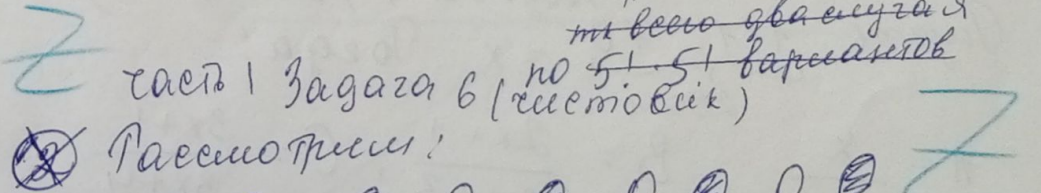 Z
тк всего два случая
по 5! · 5! вариантов
часть 1 Задача 6 (чистовик)
Z
Рассмотрим: